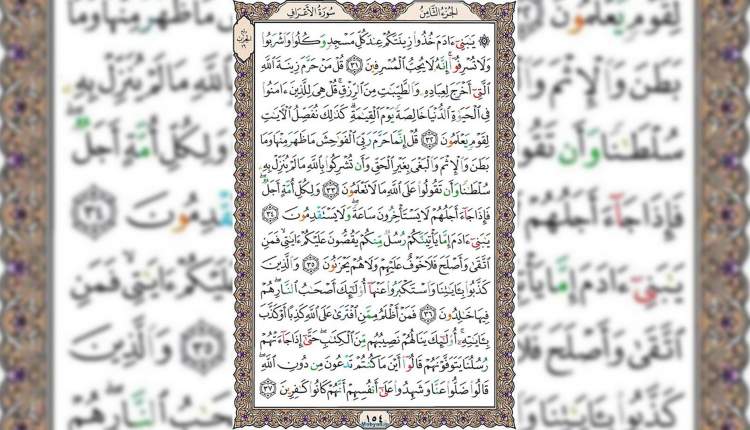 سُورَةُ الأَعْرَافِ
الجُزْءُ الثَّامِنُ
۞ يَٰبَنِىٓ ءَادَمَ خُذُوا۟ زِينَتَكُمْ عِندَ كُلِّ مَسْجِدٍ وَكُلُوا۟ وَٱشْرَبُوا۟
وَلَا تُسْرِفُوٓا۟ ۚ إِنَّهُۥ لَا يُحِبُّ ٱلْمُسْرِفِينَ ٣١ قُلْ مَنْ حَرَّمَ زِينَةَ ٱللَّهِ
ٱلَّتِىٓ أَخْرَجَ لِعِبَادِهِۦ وَٱلطَّيِّبَٰتِ مِنَ ٱلرِّزْقِ ۚ قُلْ هِىَ لِلَّذِينَ ءَامَنُوا۟
فِى ٱلْحَيَوٰةِ ٱلدُّنْيَا خَالِصَةً يَوْمَ ٱلْقِيَٰمَةِ ۗ كَذَٰلِكَ نُفَصِّلُ ٱلْءَايَٰتِ
لِقَوْمٍ يَعْلَمُونَ ٣٢ قُلْ إِنَّمَا حَرَّمَ رَبِّىَ ٱلْفَوَٰحِشَ مَا ظَهَرَ مِنْهَا وَمَا
بَطَنَ وَٱلْإِثْمَ وَٱلْبَغْىَ بِغَيْرِ ٱلْحَقِّ وَأَن تُشْرِكُوا۟ بِٱللَّهِ مَا لَمْ يُنَزِّلْ بِهِۦ
سُلْطَٰنًا وَأَن تَقُولُوا۟ عَلَى ٱللَّهِ مَا لَا تَعْلَمُونَ ٣٣ وَلِكُلِّ أُمَّةٍ أَجَلٌ ۖ
فَإِذَا جَآءَ أَجَلُهُمْ لَا يَسْتَأْخِرُونَ سَاعَةً ۖ وَلَا يَسْتَقْدِمُونَ ٣٤
يَٰبَنِىٓ ءَادَمَ إِمَّا يَأْتِيَنَّكُمْ رُسُلٌ مِّنكُمْ يَقُصُّونَ عَلَيْكُمْ ءَايَٰتِى ۙ فَمَنِ
ٱتَّقَىٰ وَأَصْلَحَ فَلَا خَوْفٌ عَلَيْهِمْ وَلَا هُمْ يَحْزَنُونَ ٣٥ وَٱلَّذِينَ
كَذَّبُوا۟ بِـَٔايَٰتِنَا وَٱسْتَكْبَرُوا۟ عَنْهَآ أُو۟لَٰٓئِكَ أَصْحَٰبُ ٱلنَّارِ ۖ هُمْ
فِيهَا خَٰلِدُونَ ٣٦ فَمَنْ أَظْلَمُ مِمَّنِ ٱفْتَرَىٰ عَلَى ٱللَّهِ كَذِبًا أَوْ كَذَّبَ
بِـَٔايَٰتِهِۦٓ ۚ أُو۟لَٰٓئِكَ يَنَالُهُمْ نَصِيبُهُم مِّنَ ٱلْكِتَٰبِ ۖ حَتَّىٰٓ إِذَا جَآءَتْهُمْ
رُسُلُنَا يَتَوَفَّوْنَهُمْ قَالُوٓا۟ أَيْنَ مَا كُنتُمْ تَدْعُونَ مِن دُونِ ٱللَّهِ ۖ
قَالُوا۟ ضَلُّوا۟ عَنَّا وَشَهِدُوا۟ عَلَىٰٓ أَنفُسِهِمْ أَنَّهُمْ كَانُوا۟ كَٰفِرِينَ ٣٧
١٥٤